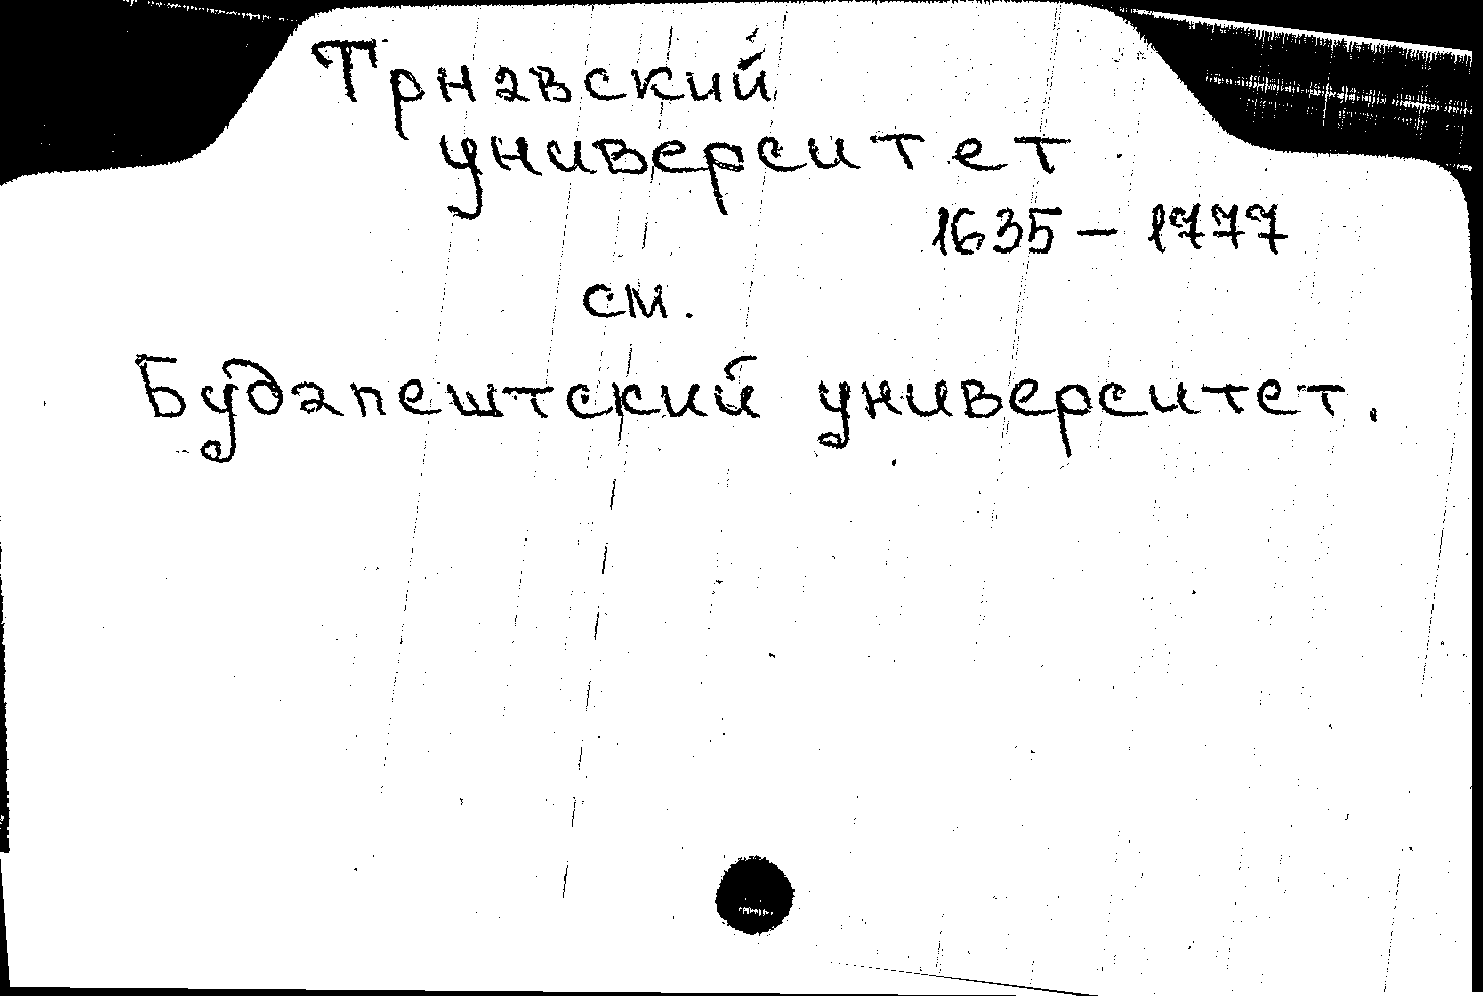 Трнавский
университет
1635 – 1777
см.
Будапештский университет.